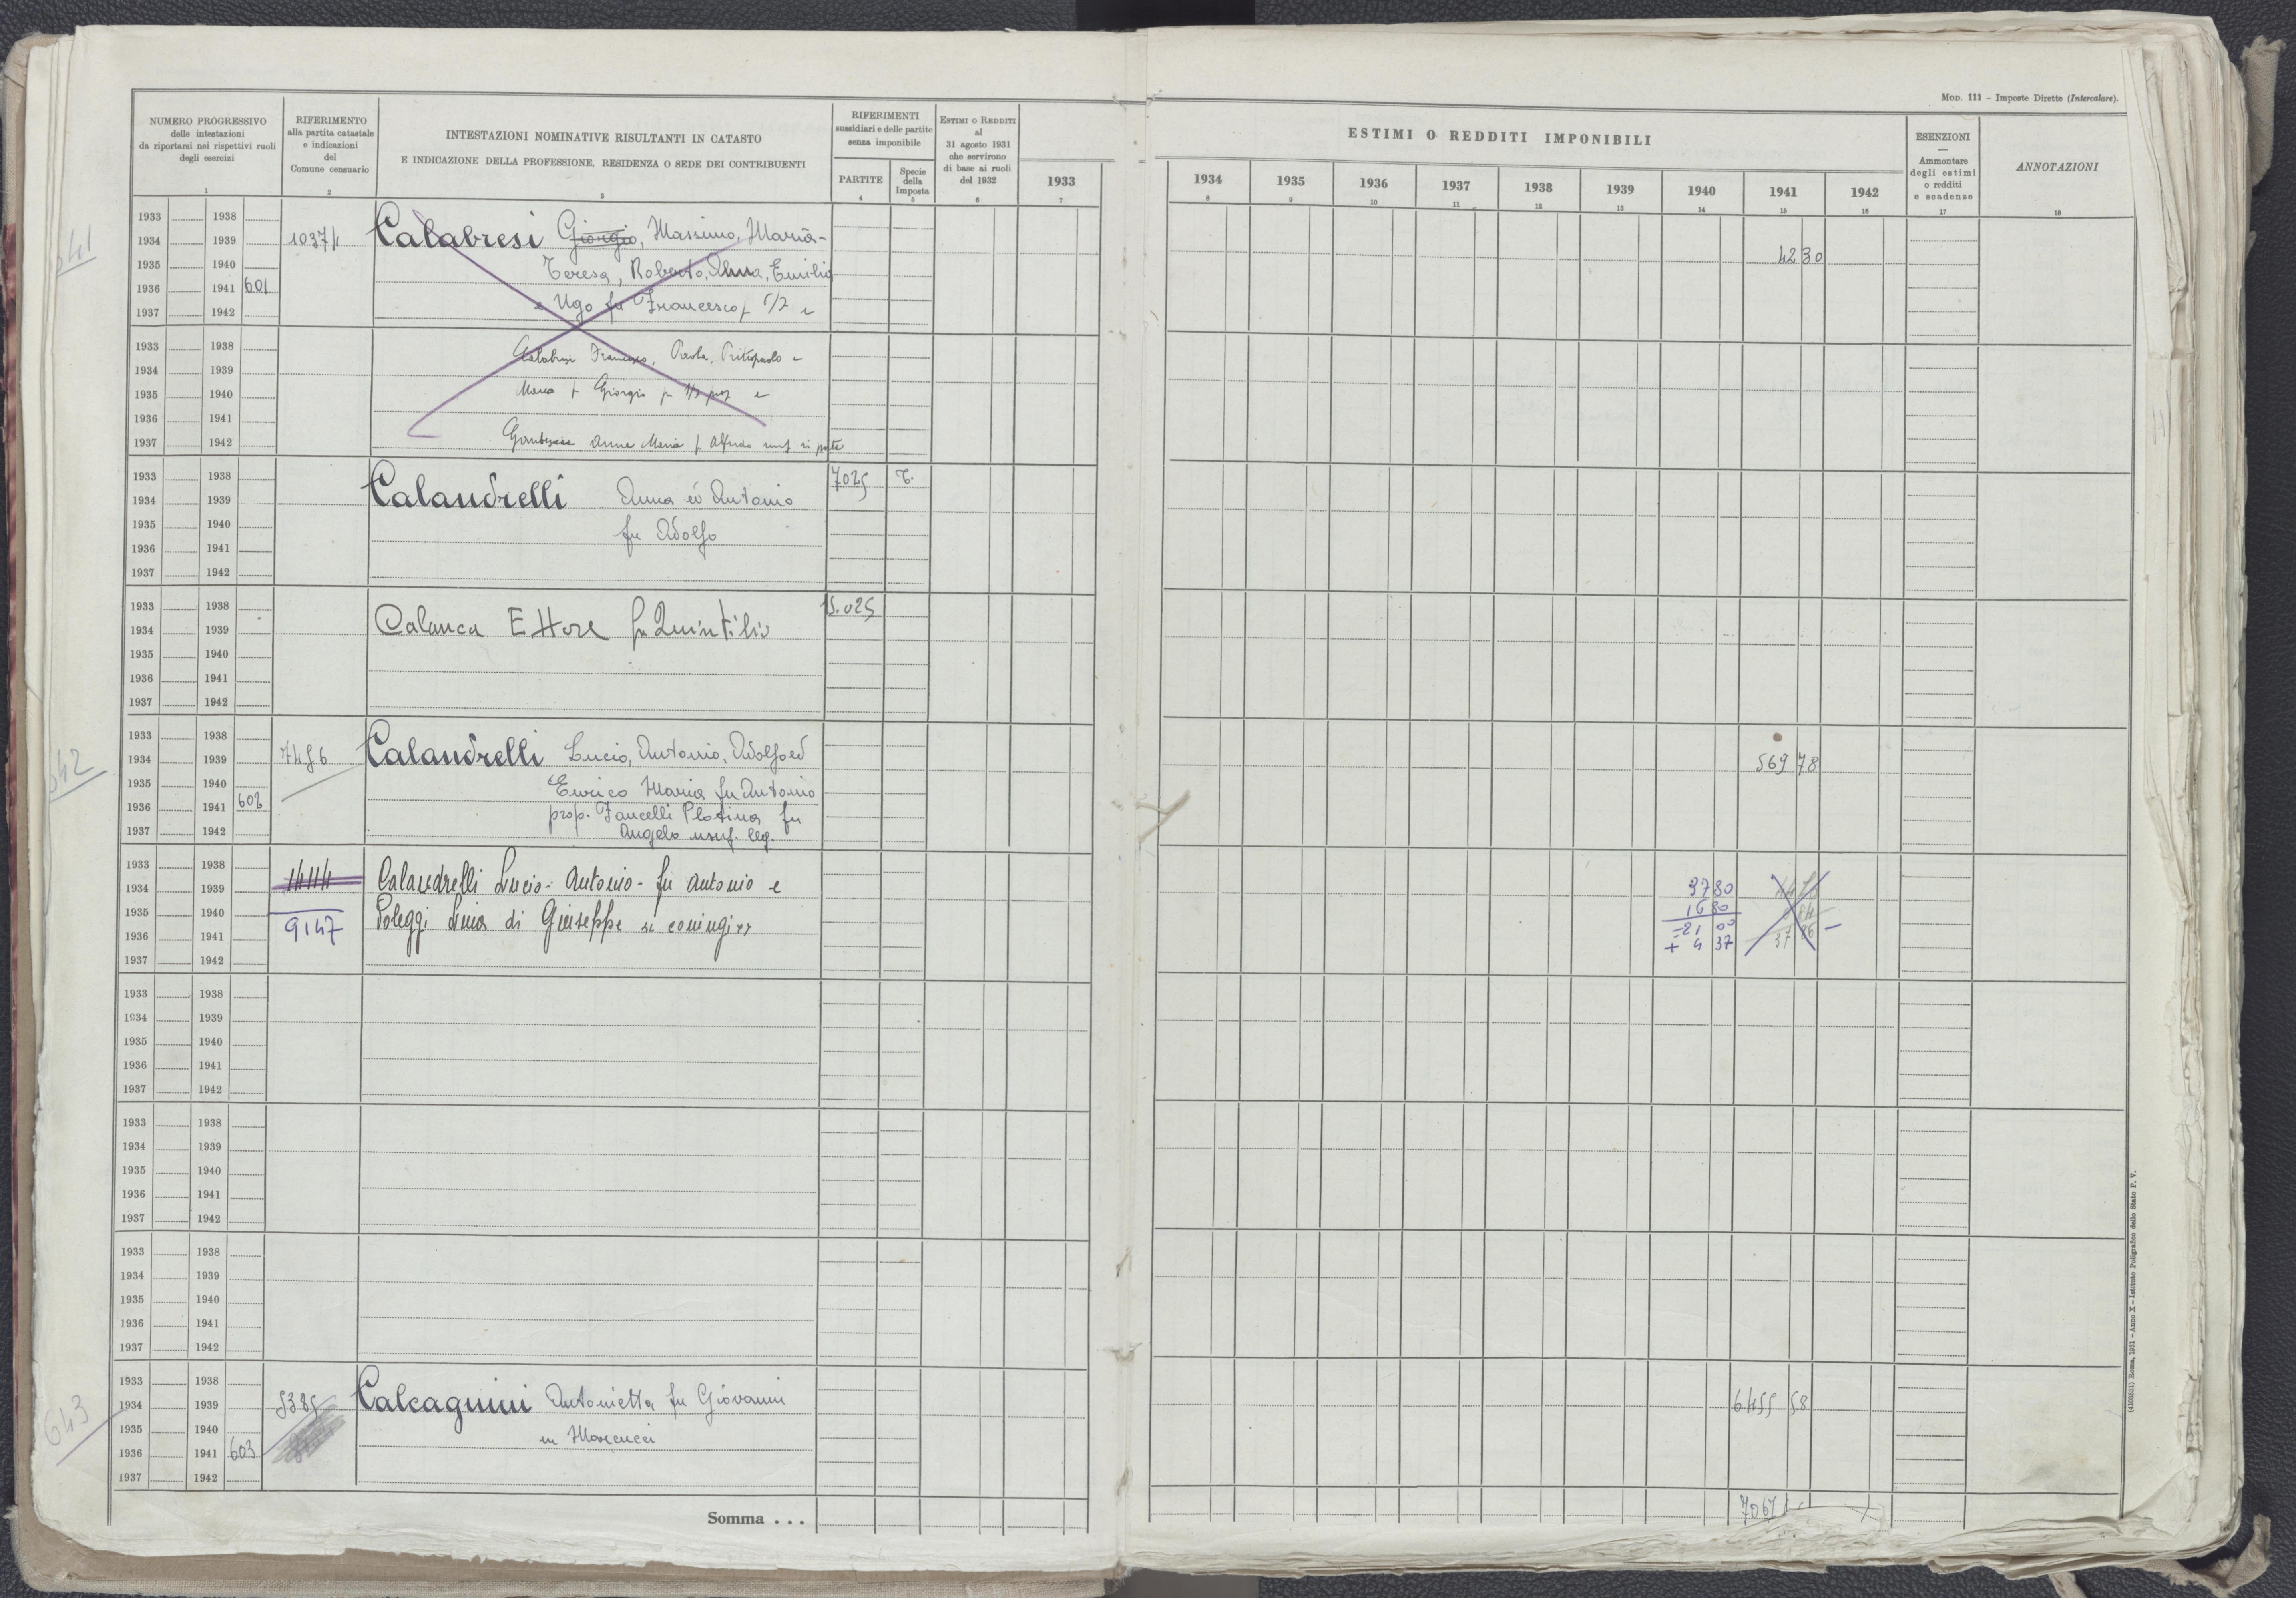 Mod. 111 - Imposte Dirette (Intercalare).
NUMERO PROGRESSIVO
delle intestazioni
da riportarsi nei rispettivi ruoli
degli esercizi
1
RIFERIMENTO
alla partita catastale
e indicazioni
del
Comune censuario
2
INTESTAZIONI NOMINATIVE RISULTANTI IN CATASTO
E INDICAZIONE DELLA PROFESSIONE, RESIDENZA O SEDE DEI CONTRIBUENTI
3
RIFERIMENTI
sussidiari e delle partite
senza imponibile
PARTITE
4
Specie
della
Imposta
5
ESTIMI O REDDITI
al
31 agosto 1931
che servirono
di base ai ruoli
del 1932
6
1933
7
ESTIMI O REDDITI IMPONIBILI
1934 1935 1936 1937 1938 1939 1940 1941 1942
8 9 10 11 12 13 14 15 16
ESENZIONI
—
Ammontare
degli estimi
o redditi
e scadenze
17
ANNOTAZIONI
18
1933 1938
1934 1939 10374 Calabresi Giorgio, Massimo, Maria-
1935 1940 Teresa, Roberto, Anna, Emilio 42 30
1936 1941 601
1937 1942 e Ugo fu Francesco, e
1933 1938
Calabresi Francesco, Paola, e
1934 1939
1935 1940 Maria f Giorgio e
1936 1941
1937 1942 Anna Maria f Alfredo usuf in parte
1933 1938 7025 T.
1934 1939 Calandrelli Anna ed Antonio
1935 1940
1936 1941 fu Adolfo
1937 1942
1933 1938
1934 1939 Calanca Ettore fu Quintilio
1935 1940
1936 1941
1937 1942
1933 1938
642
1934 1939 7456 Calandrelli Lucio, Antonio, Adolfo ed 569 78
1935 1940 Enrico Maria fu Antonio
1936 1941 602 prop. Fancelli Plotina fu
1937 1942 Angelo usuf. leg.
1933 1938
1934 1939 14114 Calandrelli Lucio - Antonio - fu Antonio e 37 80
1935 1940 Poleggi Lina di Giuseppe 16 80
1936 1941 9147 =21 00
1937 1942 + 4 37
1933 1938
1934 1939
1935 1940
1936 1941
1937 1942
1933 1938
1934 1939
1935 1940
1936 1941
1937 1942
1933 1938
1934 1939
1935 1940
1936 1941
1937 1942
1933 1938
643
1934 1939 5385 Calcagnini Antonietta fu Giovanni 6455 58
1935 1940 in Marcucci
1936 1941 603
1937 1942
Somma . . . 7067
(4105631) Roma, 1931 - Anno X - Istituto Poligrafico dello Stato P. V.